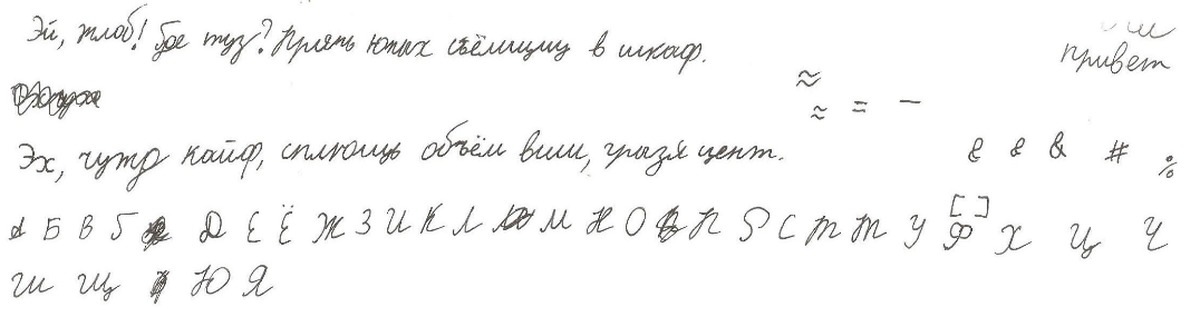 Эй, жлоб! Где туз? Прячь юных съёмщиц в шкаф.
ши
привет
≈
≈ = –
Эх, чужд кайф, сплющь объём вши, грызя цент.
& & & # %
А Б В Г Д Е Ё Ж З И К Л М Н О П Р С Т Т У Ф Х Ц Ч
[ ]
Ш Щ Ю Я